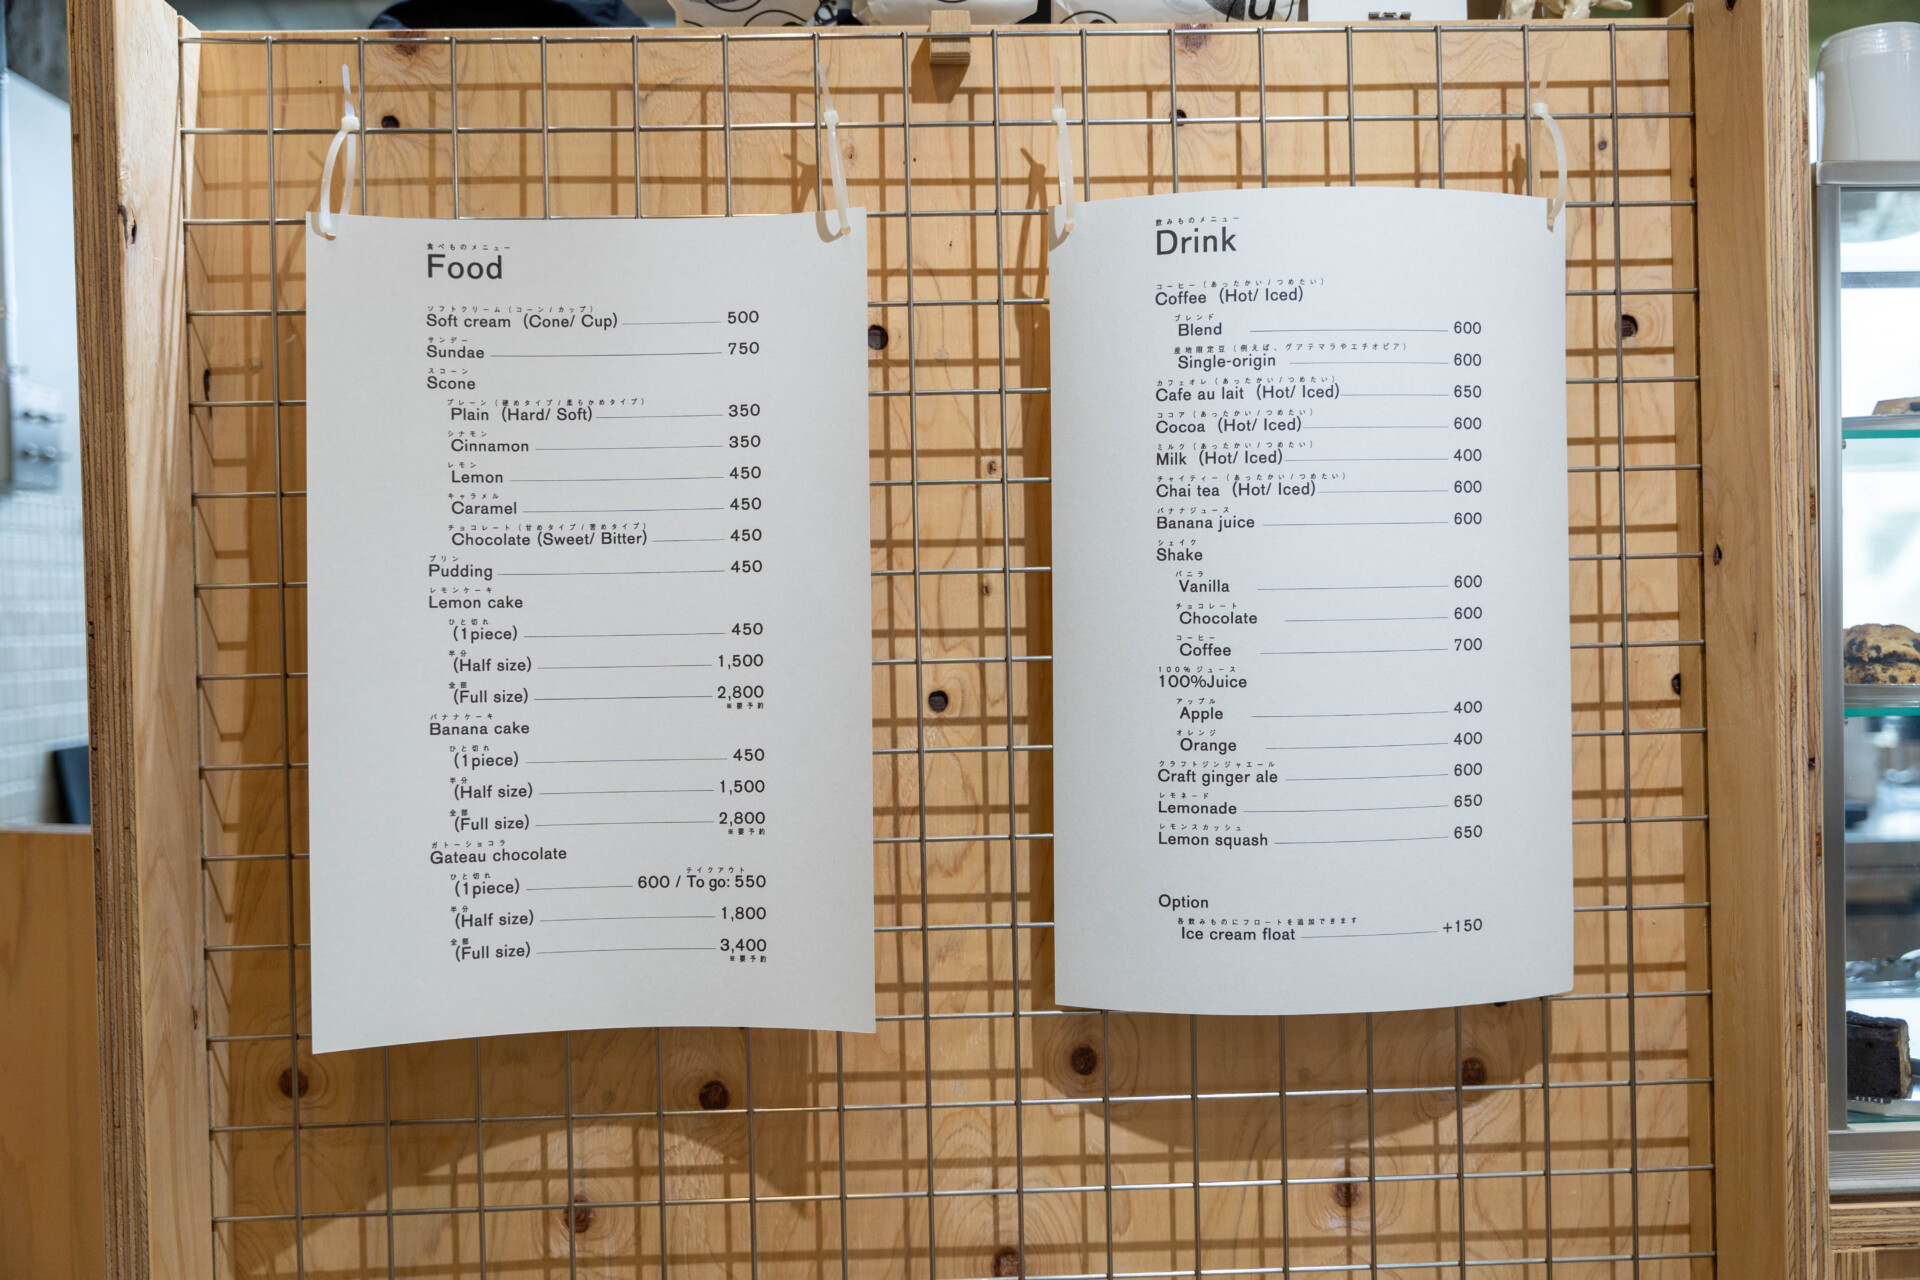 食べものメニュー
Food
ソフトクリーム（コーン/カップ）
Soft cream (Cone/ Cup) 500
サンデー
Sundae 750
スコーン
Scone
プレーン（硬めタイプ/柔らかめタイプ）
Plain (Hard/ Soft) 350
シナモン
Cinnamon 350
レモン
Lemon 450
キャラメル
Caramel 450
チョコレート（甘めタイプ/苦めタイプ）
Chocolate (Sweet/ Bitter) 450
プリン
Pudding 450
レモンケーキ
Lemon cake
ひと切れ
(1piece) 450
半分
(Half size) 1,500
全部
(Full size) 2,800
※要予約
バナナケーキ
Banana cake
ひと切れ
(1piece) 450
半分
(Half size) 1,500
全部
(Full size) 2,800
※要予約
ガトーショコラ
Gateau chocolate
ひと切れ テイクアウト
(1piece) 600 / To go: 550
半分
(Half size) 1,800
全部
(Full size) 3,400
※要予約
飲みものメニュー
Drink
コーヒー（あったかい/つめたい）
Coffee (Hot/ Iced)
ブレンド
Blend 600
産地限定豆（例えば、グアテマラやエチオピア）
Single-origin 600
カフェオレ（あったかい/つめたい）
Cafe au lait (Hot/ Iced) 650
ココア（あったかい/つめたい）
Cocoa (Hot/ Iced) 600
ミルク（あったかい/つめたい）
Milk (Hot/ Iced) 400
チャイティー（あったかい/つめたい）
Chai tea (Hot/ Iced) 600
バナナジュース
Banana juice 600
シェイク
Shake
バニラ
Vanilla 600
チョコレート
Chocolate 600
コーヒー
Coffee 700
100%ジュース
100%Juice
アップル
Apple 400
オレンジ
Orange 400
クラフトジンジャエール
Craft ginger ale 600
レモネード
Lemonade 650
レモンスカッシュ
Lemon squash 650
Option
各飲みものにフロートを追加できます
Ice cream float +150